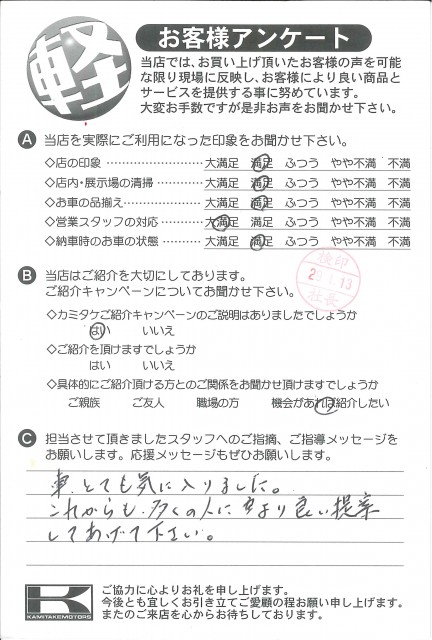 軽
お客様アンケート
当店では、お買い上げ頂いたお客様の声を可能
な限り現場に反映し、お客様により良い商品と
サービスを提供する事に努めています。
大変お手数ですが是非お声をお聞かせ下さい。
A 当店を実際にご利用になった印象をお聞かせ下さい。
◇店の印象 ………………… 大満足 満足 ふつう やや不満 不満
◇店内・展示場の清掃 ………… 大満足 満足 ふつう やや不満 不満
◇お車の品揃え ……………… 大満足 満足 ふつう やや不満 不満
◇営業スタッフの対応 ………… 大満足 満足 ふつう やや不満 不満
◇納車時のお車の状態 ………… 大満足 満足 ふつう やや不満 不満
検印
社長
B 当店はご紹介を大切にしております。
ご紹介キャンペーンについてお聞かせ下さい。
◇カミタケご紹介キャンペーンのご説明はありましたでしょうか
はい いいえ
◇ご紹介を頂けますでしょうか
はい いいえ
◇具体的にご紹介頂ける方とのご関係をお聞かせ頂けますでしょうか
ご親族 ご友人 職場の方 機会があれば紹介したい
C 担当させて頂きましたスタッフへのご指摘、ご指導メッセージを
お願いします。応援メッセージもぜひお願いします。
車、とても気に入りました。
これからも、多くの人に より良い提案
してあげて下さい。
K
KAMITAKEMOTORS
ご協力に心よりお礼を申し上げます。
今後とも宜しくお引き立てご愛顧の程お願い申し上げます。
またのご来店を心からお待ちしております。